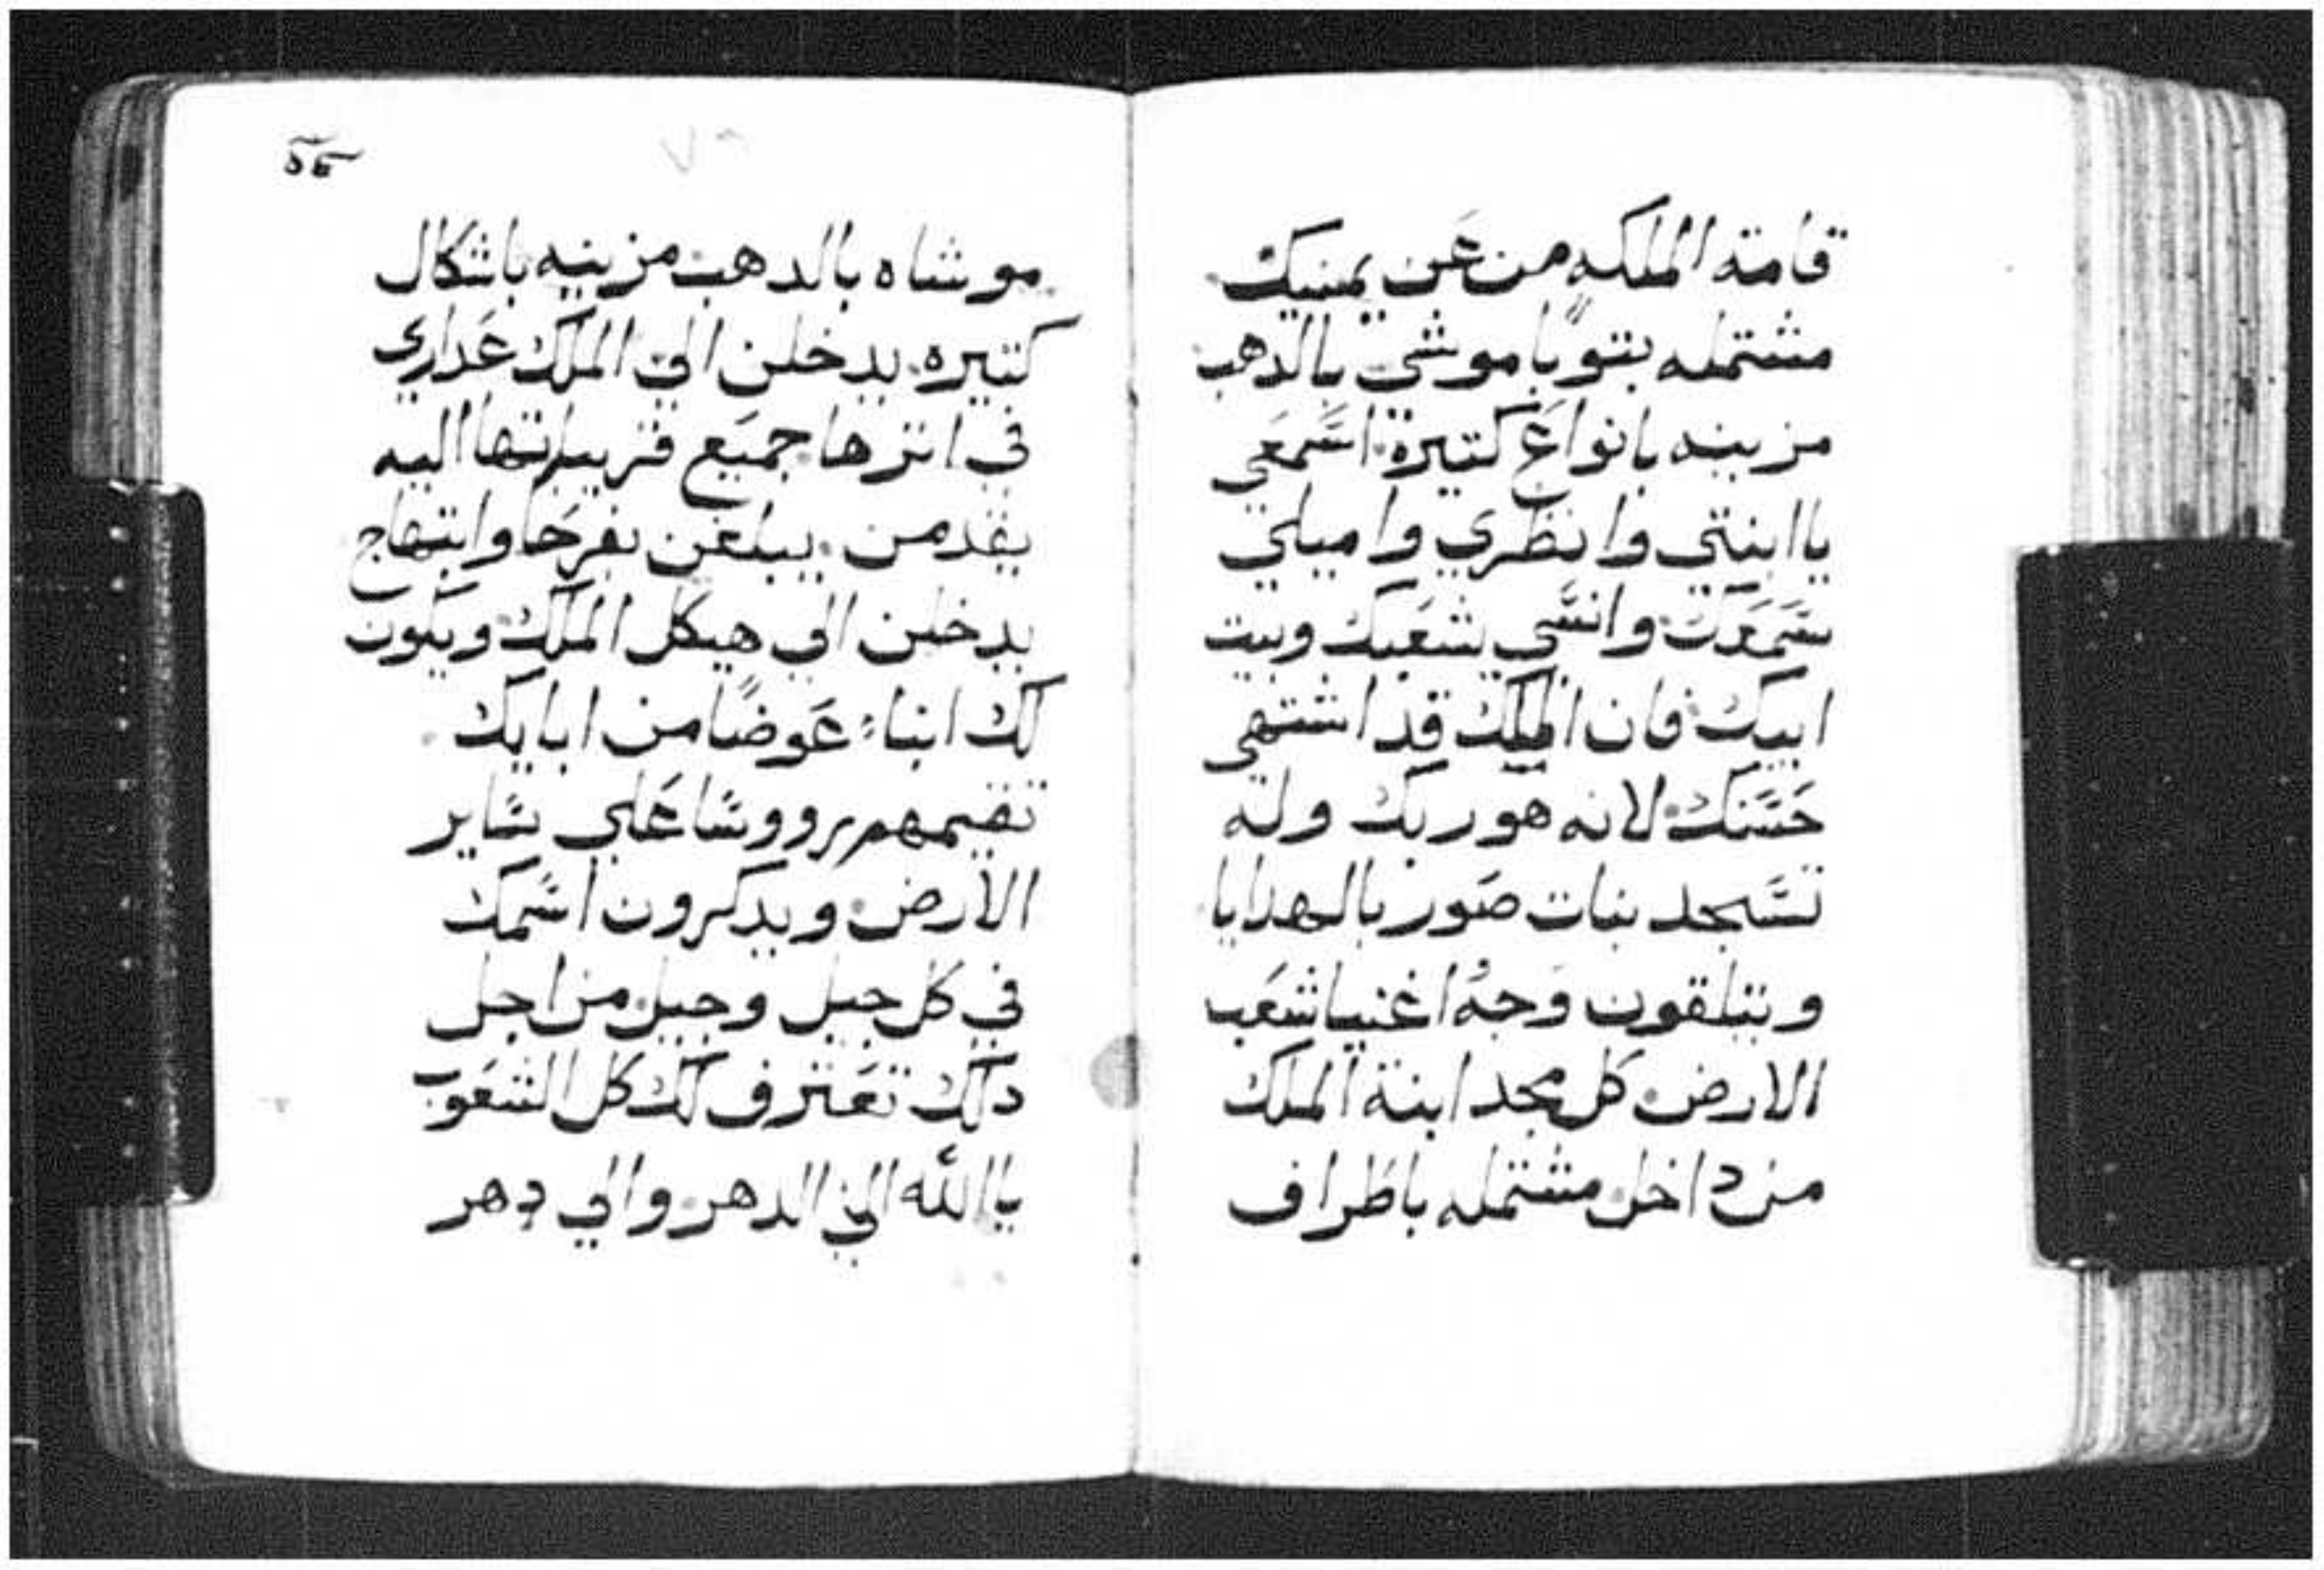 قامة الملكه من عن يمينك
مشتمله بتوبًا موشي بالدهب
مزينه بانواع كتيرة اسمعي
يا ابنتي وانظري واميلي
سمعك وانسي شعبك وبيت
ابيك فان الملك قد اشتهي
حسنك لانه هو ربك وله
تسجد بنات صور بالهدايا
ويتلقون وجهُ اغنيا شعب
الارض كل مجد ابنة الملك
من داخل مشتمله باطراف
موشاه بالدهب مزينه باشكال
كتيره يدخلن الي الملك عداري
في اترها جميع قريباتها اليه
يقدمن يبلغن بفرحا وابتهاج
يدخلن الي هيكل الملك ويكون
لك ابناء عوضًا من ابايك
تقيمهم رووسا علي ساير
الارض ويدكرون اسمك
في كل جيل وجيل من اجل
دلك تعترف لك كل الشعوب
يا الله الي الدهر والي دهر